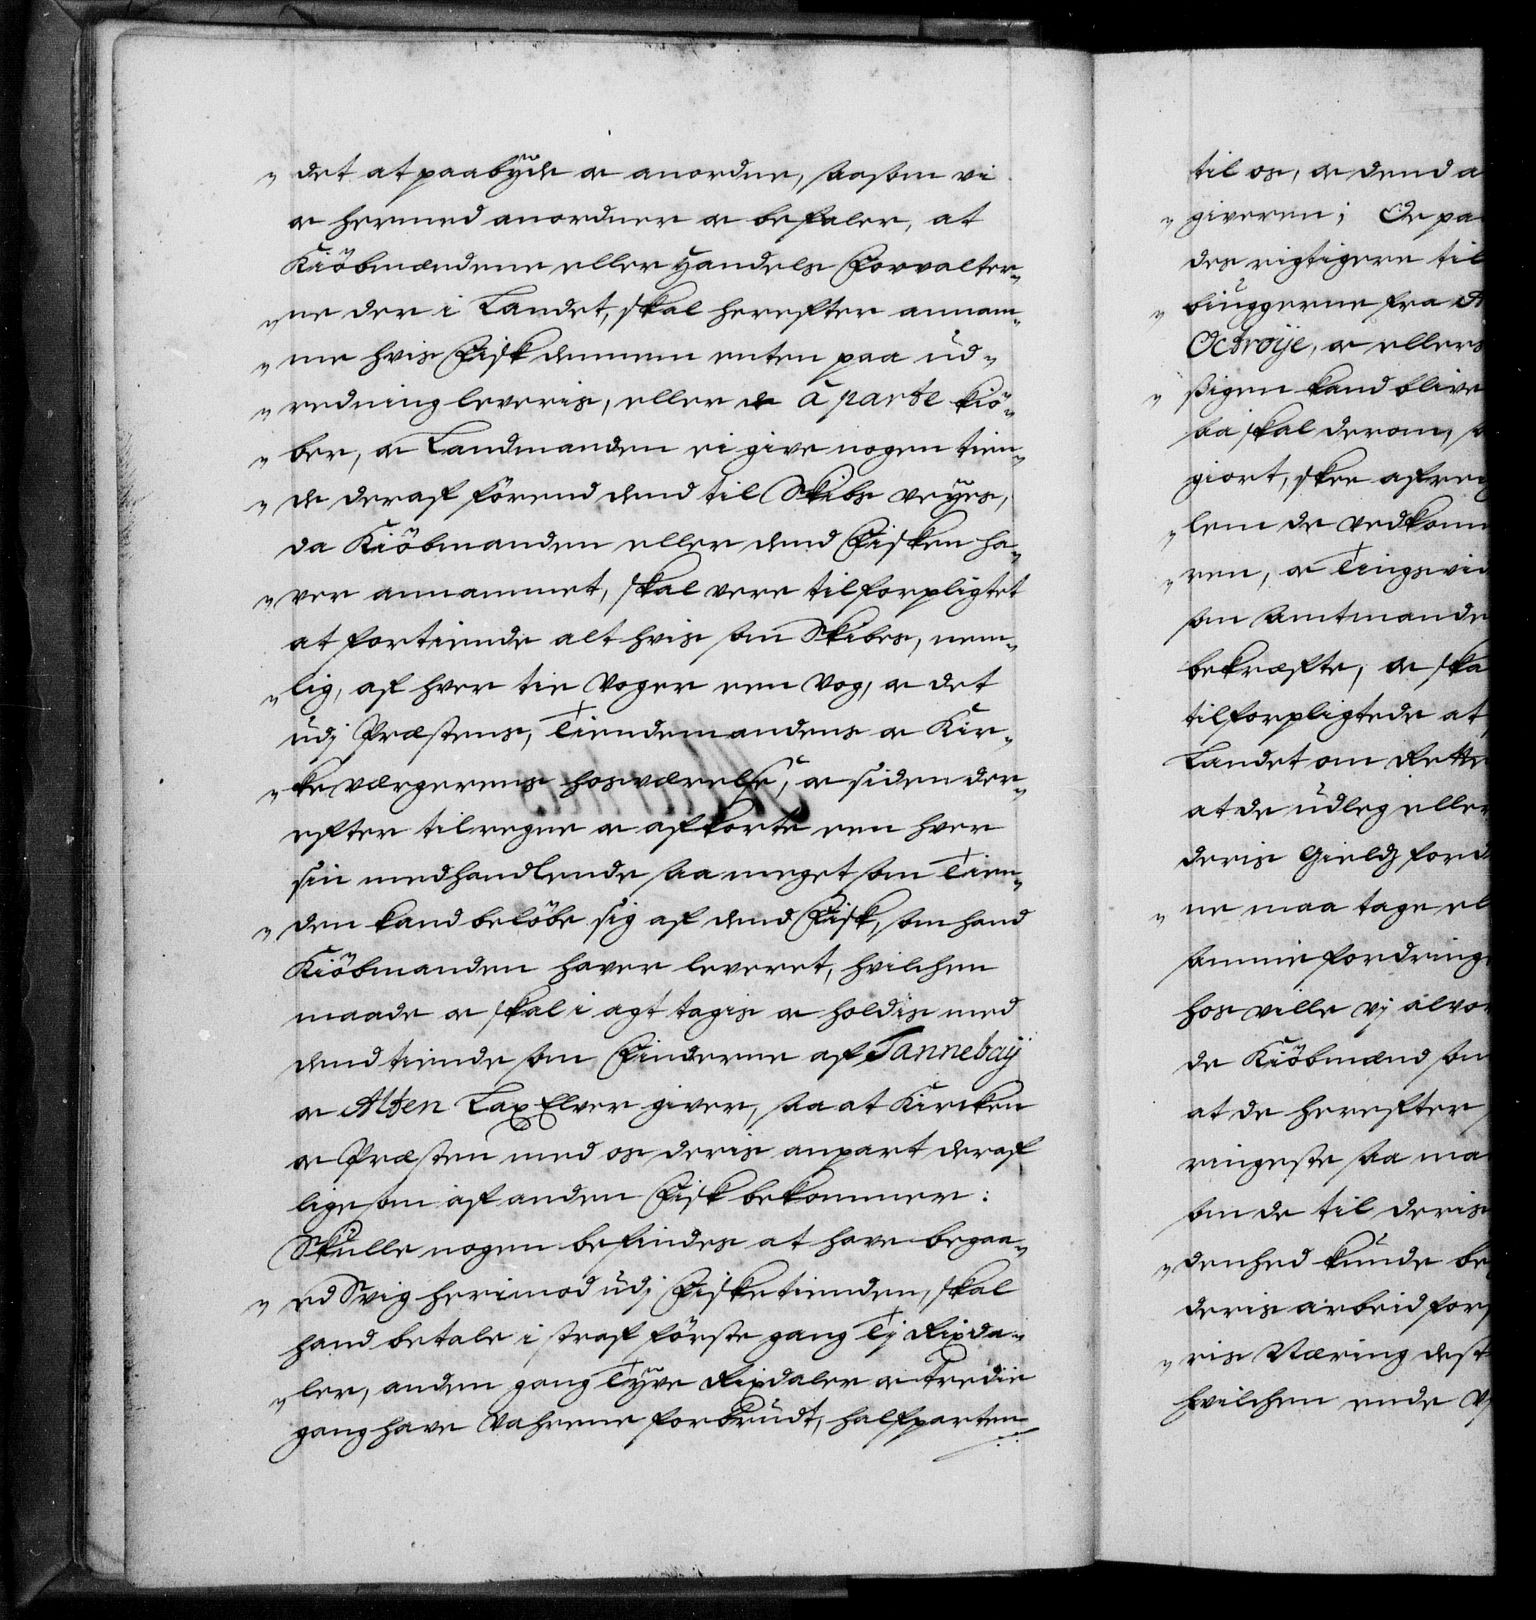 „ det at paabÿde oc anordne, saasom vi
oc hermed anordner oc befaler, at
Kiöbmændene eller Handels Forvalter„
„ ne der i Landet, skal herefter annam„
„ me hvis Fisk dennem enten paa ud„
„ redning leveris, eller de à parte kiö„
„ ber, oc Landmanden ei give nogen tien„
„ de deraf förend dend til Skibs veÿes,
da Kiöbmanden eller dend Fisken ha„
„ ver annammet, skal vere tilforpligtet
at fortiende alt hvis som Skibes, nem„
„ lig, af hver tie Voger een Vog, oc det
udj Præstens, Tiendemandens oc Kir„
„ keværgernes hosværelse, oc siden der„
efter tilregne oc afkorte een hver
sin medhandlende saa meget som Tien„
„ den kand belöbe sig af dend Fisk, som hand
Kiöbmanden haver leveret, hvilchen
maade oc skal i agt tagis oc holdis med
dend tiende som Finderne af Tannebaÿ
oc Alten Lax Elver giver, saa at Kircken
oc Præsten med os deris anpart deraf
ligesom af anden Fisk bekommer:
Skulle nogen befindes at have begaa„
„ ed Svig herimod udj Fisketienden, skal
hand betale i straf förste gang Tj Rixda„
„ ler, anden gang Tÿve Rixdaler oc Tredie
gang have Vahrene forbrudt, halfparten
til os, oc dend a
„ giveren; Oc paa
des rigtigere til
„ biuggerne fra A
Octroÿe, oc ellers
„ sigen kand blive
saa skal derom,
giort, skee afreg
„ lem de vedkom
„ ren, oc Tingsvid
som Amtmande
bekræfte, oc ska
tilforpligtede at
Landet om Rette
at de udleg eller
deris Gieldz ford
„ ne maa tage el
samme fordring
hos ville vj alvor
de Kiöbmænd som
at de herefter
ringeste saa ma
som de til deris
„ denhed kunde be
deris arbeid for
„ ris Næring dest
hvilchen ende V